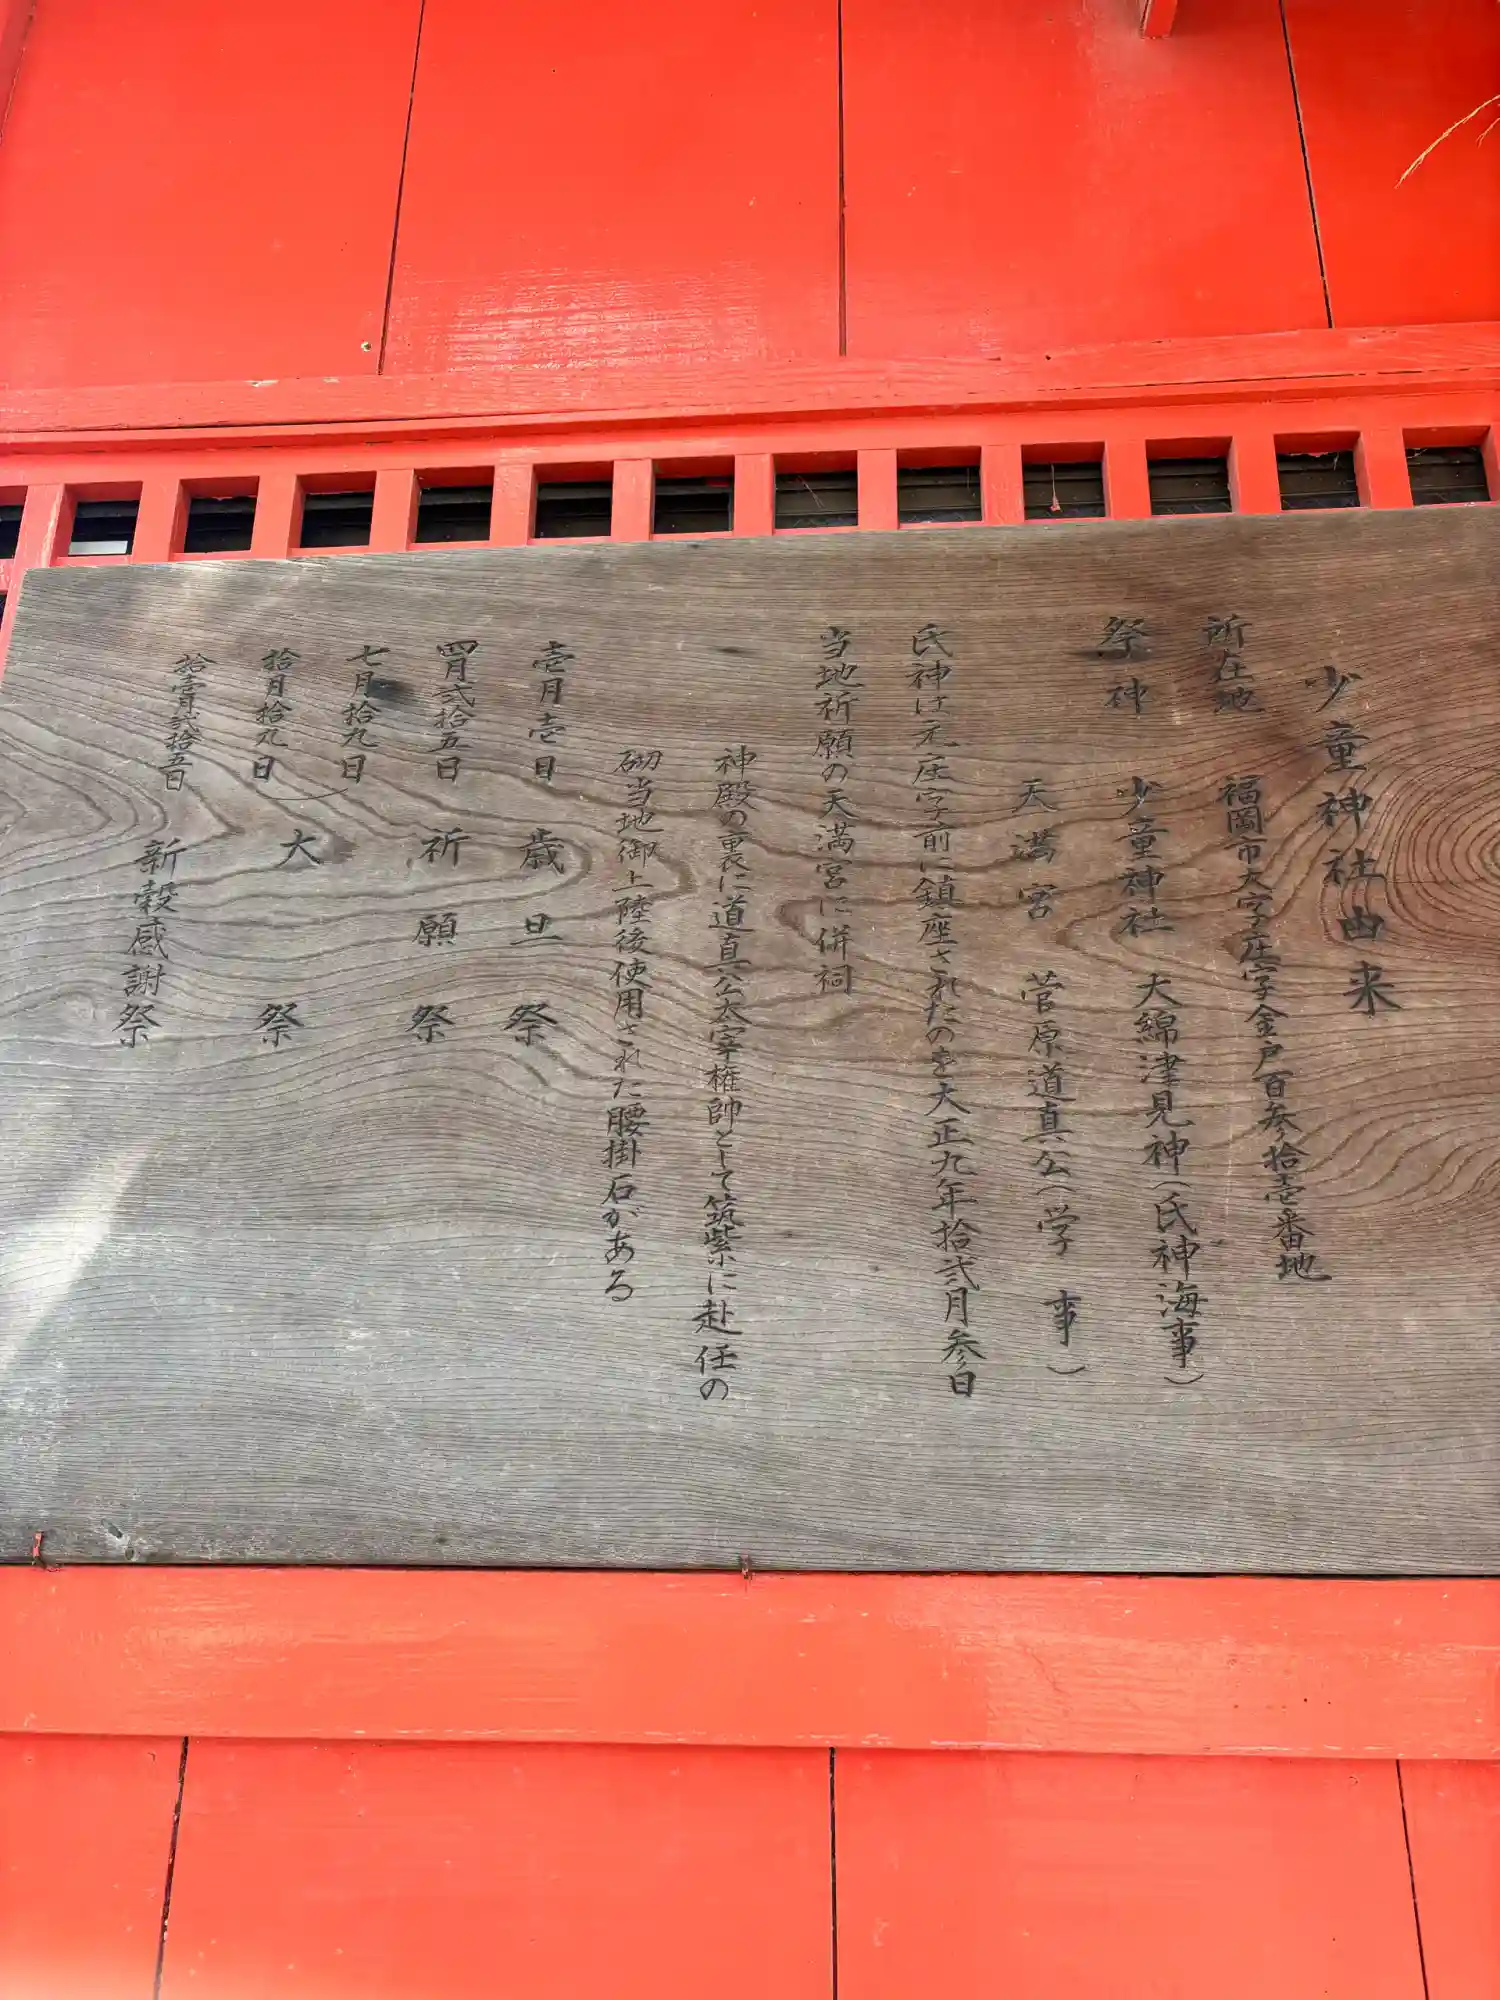 少童神社由来
所在地 福岡市大字庄字金戸百参拾壱番地
祭神 少童神社 大綿津見神(氏神海事)
天満宮 菅原道真公(学事)
氏神は元庄字前に鎮座されたのを大正九年拾弐月参日
当地祈願の天満宮に併祠
神殿の裏に道真公太宰権帥として筑紫に赴任の
砌当地御上陸後使用された腰掛石がある
壱月壱日 歳旦祭
四月弐拾五日 祈願祭
七月拾九日
拾月拾九日 大祭
拾壱月弐拾五日 新穀感謝祭